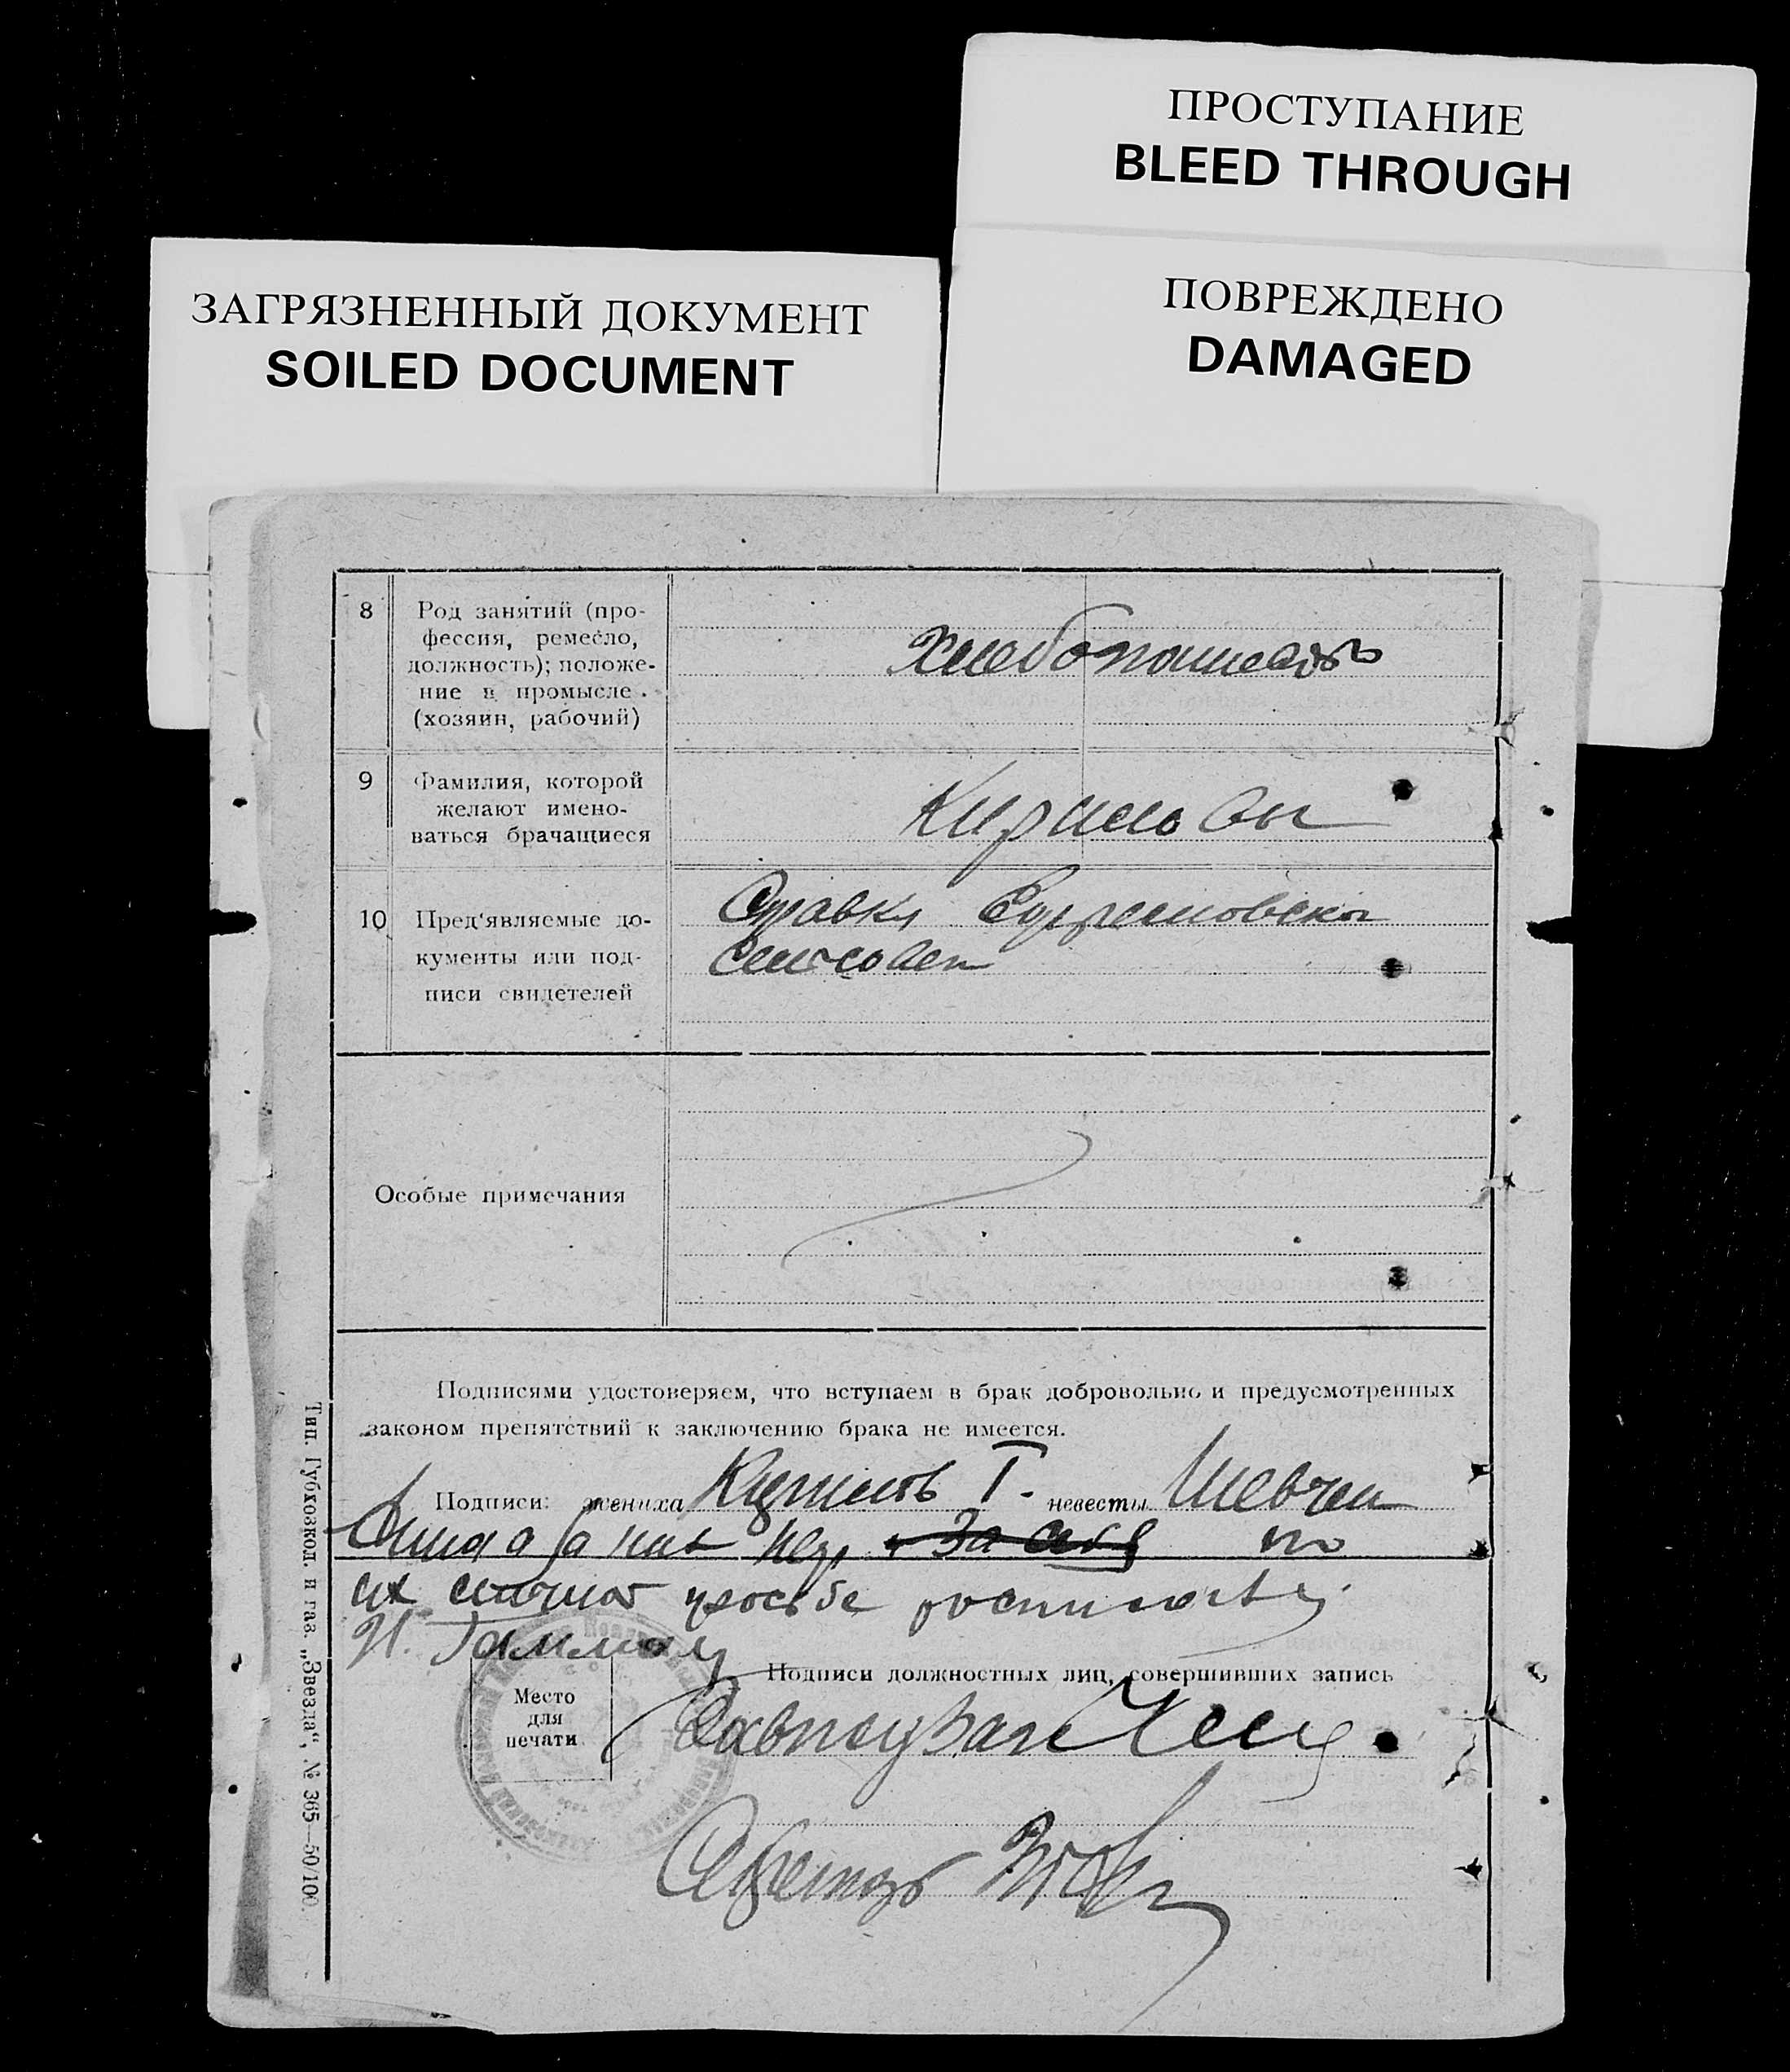 ПРОСТУПАНИЕ
BLEED THROUGH
ЗАГРЯЗНЕННЫЙ ДОКУМЕНТ
SOILED DOCUMENT
ПОВРЕЖДЕНО
DAMAGED
8
Род занятий (про-
фессия, ремесло,
должность); положе-
ние в промысле.
(хозяин, рабочий)
Хлебопашество
9
Фамилия, которой
желают имено-
ваться брачащиеся
Кириловы
10
Пред'являемые до-
кументы или под-
писи свидетелей
Справка
сельсовет
Особые примечания
Подписями удостоверяем, что вступаем в брак добровольно и предусмотренных
законом препятствий к заключению брака не имеется.
Подписи: жениха Кирилов Г. невесты Шевчен
а за них за себя по
их личной просьбе
Место
для
печати
Подписи должностных лиц, совершивших запись
Зав
Секретарь
Тип. Губхозкол. и газ. „Звезда“, № 365—50/100.